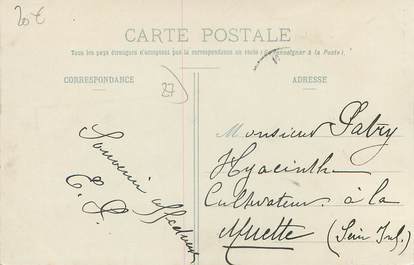 20€
CARTE POSTALE
Tous les pays étrangers n'acceptent pas la correspondance au recto (Se renseigner à la Poste).
CORRESPONDANCE
ADRESSE
27
Souvenir affectueux
E. P
Monsieur Patry
Hyacinthe
Cultivateur à la
Muette (Sein Inf.)